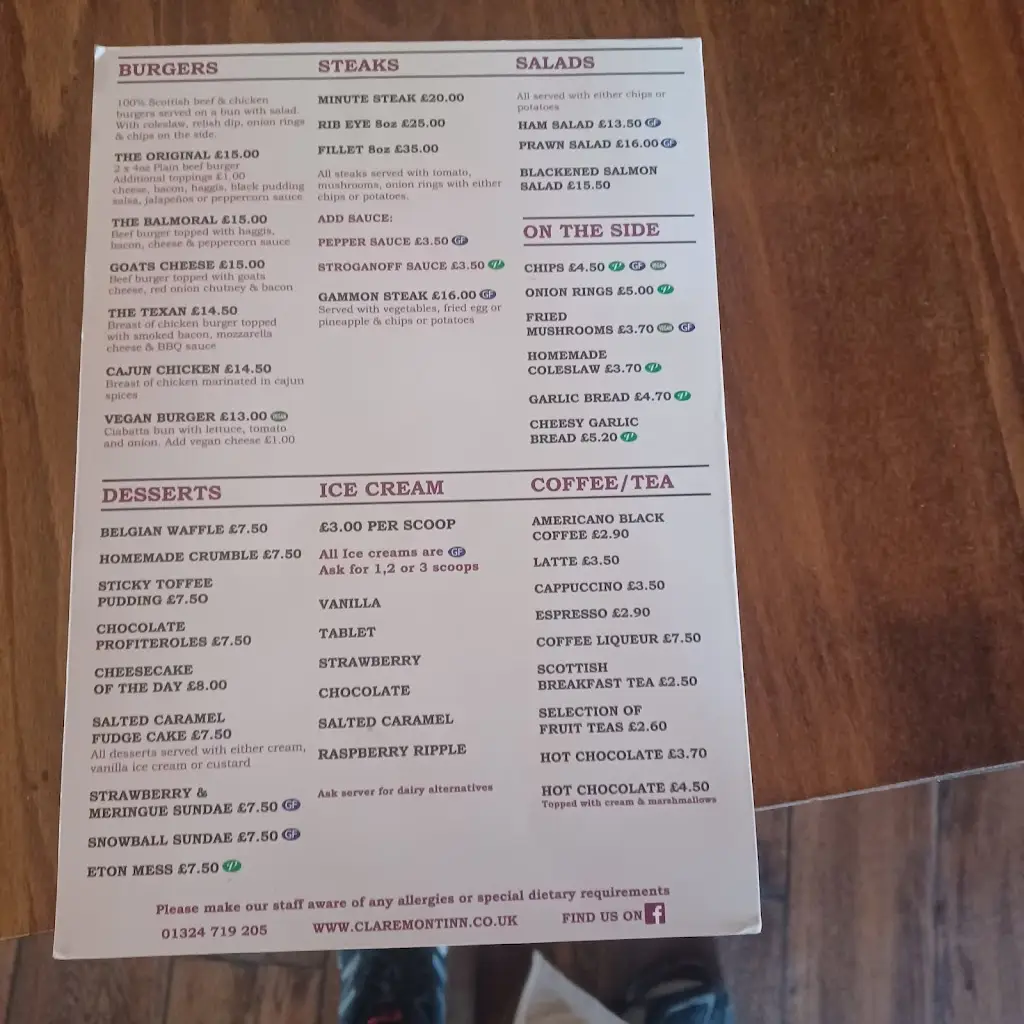 BURGERS
100% Scottish beef & chicken
burgers served on a bun with salad.
With coleslaw, relish dip, onion rings
& chips on the side.
THE ORIGINAL £15.00
2 x 4oz Plain beef burger
Additional toppings £1.00
cheese, bacon, haggis, black pudding
salsa, jalapeños or peppercorn sauce
THE BALMORAL £15.00
Beef burger topped with haggis,
bacon, cheese & peppercorn sauce
GOATS CHEESE £15.00
Beef burger topped with goats
cheese, red onion chutney & bacon
THE TEXAN £14.50
Breast of chicken burger topped
with smoked bacon, mozzarella
cheese & BBQ sauce
CAJUN CHICKEN £14.50
Breast of chicken marinated in cajun
spices
VEGAN BURGER £13.00
Ciabatta bun with lettuce, tomato
and onion. Add vegan cheese £1.00
STEAKS
MINUTE STEAK £20.00
RIB EYE 8oz £25.00
FILLET 8oz £35.00
All steaks served with tomato,
mushrooms, onion rings with either
chips or potatoes.
ADD SAUCE:
PEPPER SAUCE £3.50 GF
STROGANOFF SAUCE £3.50 V
GAMMON STEAK £16.00 GF
Served with vegetables, fried egg or
pineapple & chips or potatoes
SALADS
All served with either chips or
potatoes
HAM SALAD £13.50 GF
PRAWN SALAD £16.00 GF
BLACKENED SALMON
SALAD £15.50
ON THE SIDE
CHIPS £4.50 V GF
ONION RINGS £5.00 V
FRIED
MUSHROOMS £3.70 GF
HOMEMADE
COLESLAW £3.70 V
GARLIC BREAD £4.70 V
CHEESY GARLIC
BREAD £5.20 V
DESSERTS
BELGIAN WAFFLE £7.50
HOMEMADE CRUMBLE £7.50
STICKY TOFFEE
PUDDING £7.50
CHOCOLATE
PROFITEROLES £7.50
CHEESECAKE
OF THE DAY £8.00
SALTED CARAMEL
FUDGE CAKE £7.50
All desserts served with either cream,
vanilla ice cream or custard
STRAWBERRY &
MERINGUE SUNDAE £7.50 GF
SNOWBALL SUNDAE £7.50 GF
ETON MESS £7.50 V
ICE CREAM
£3.00 PER SCOOP
All Ice creams are GF
Ask for 1,2 or 3 scoops
VANILLA
TABLET
STRAWBERRY
CHOCOLATE
SALTED CARAMEL
RASPBERRY RIPPLE
Ask server for dairy alternatives
COFFEE/TEA
AMERICANO BLACK
COFFEE £2.90
LATTE £3.50
CAPPUCCINO £3.50
ESPRESSO £2.90
COFFEE LIQUEUR £7.50
SCOTTISH
BREAKFAST TEA £2.50
SELECTION OF
FRUIT TEAS £2.60
HOT CHOCOLATE £3.70
HOT CHOCOLATE £4.50
Topped with cream & marshmallows
Please make our staff aware of any allergies or special dietary requirements
01324 719 205
WWW.CLAREMONTINN.CO.UK
FIND US ON f